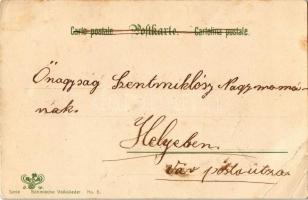 Carte postale. Postkarte. Cartolina postale.
Őnagysag Szentmiklósy Nagymama-
nak.
Helyeben.
Vár posta utza
Serie Böhmische Volkslieder No. 8.